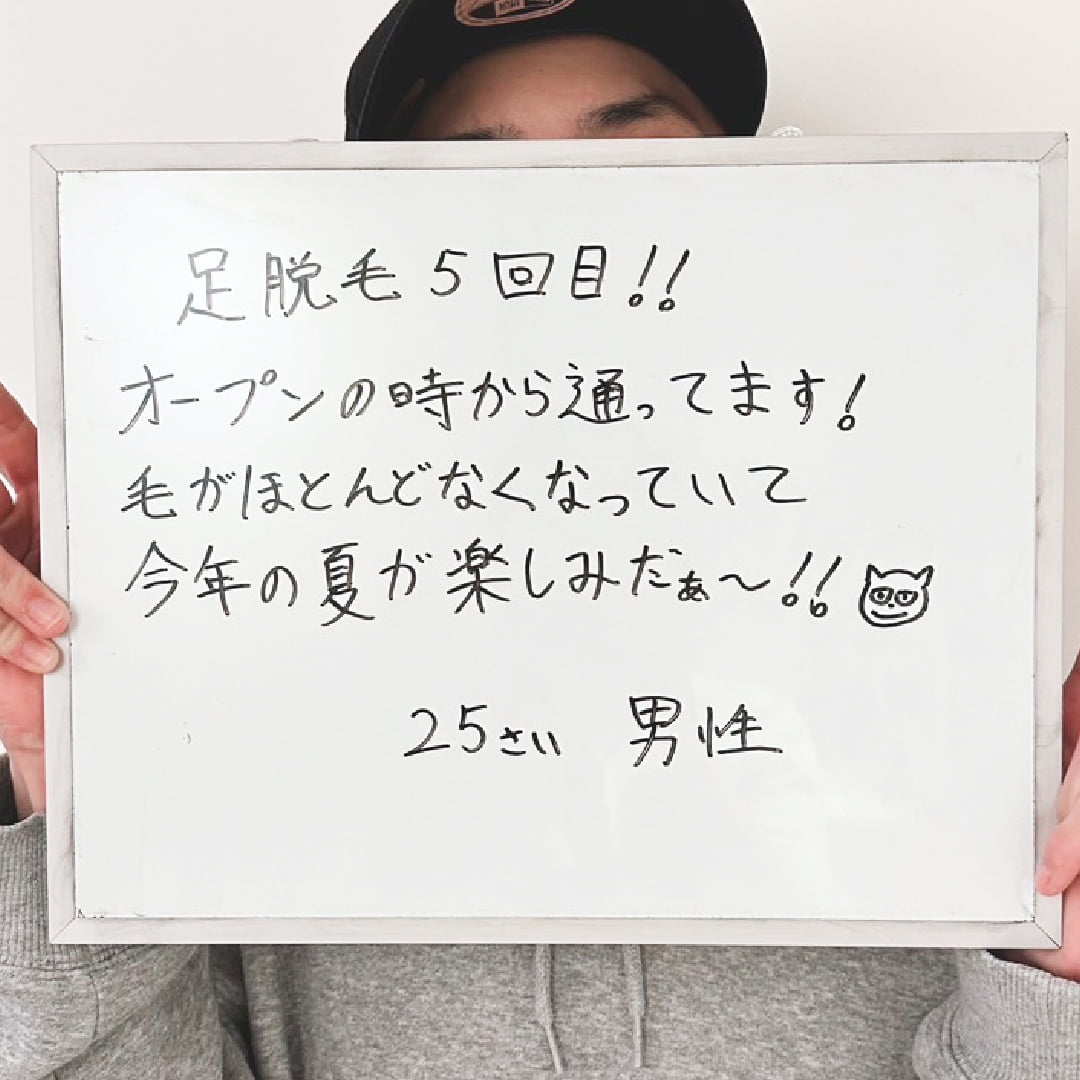 足脱毛5回目!!
オープンの時から通ってます!
毛がほとんどなくなっていて
今年の夏が楽しみだぁ〜!!
25さい 男性